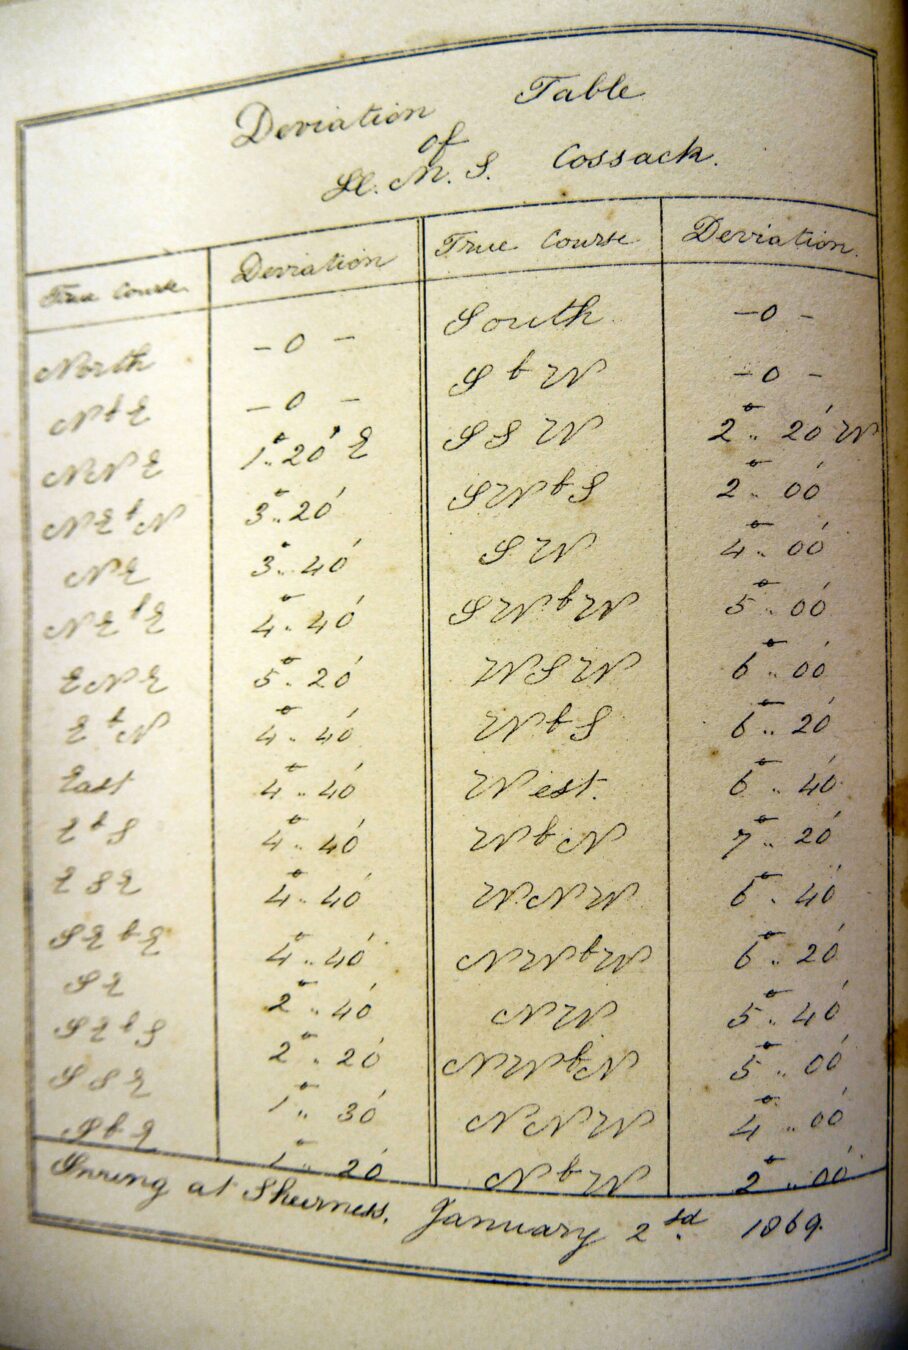 Deviation Table
of
H. M. S. Cossack.
True Course Deviation True Course Deviation.
North - 0 - South - 0 -
N b E - 0 - S b W - 0 -
N N E 1°.. 20' E S S W 2°.. 20' W
N E b N 3°.. 20' S W b S 2°.. 00'
N E 3°.. 40' S W 4°.. 00'
N E b E 4°.. 40' S W b W 5°.. 00'
E N E 5°.. 20' W S W 6°.. 00'
E b N 4°.. 40' W b S 6°.. 20'
East 4°.. 40' West. 6°.. 40'
E b S 4°.. 40' W b N 7°.. 20'
E S E 4°.. 40' W N W 6°.. 40'
S E b E 4°.. 40' N W b W 6°.. 20'
S E 2°.. 40' N W 5°.. 40'
S E b S 2°.. 20' N W b N 5°.. 00'
S S E 1°.. 30' N N W 4°.. 00'
S b E 1°.. 20' N b W 2°.. 00'
at Sheerness. January 2nd. 1869.